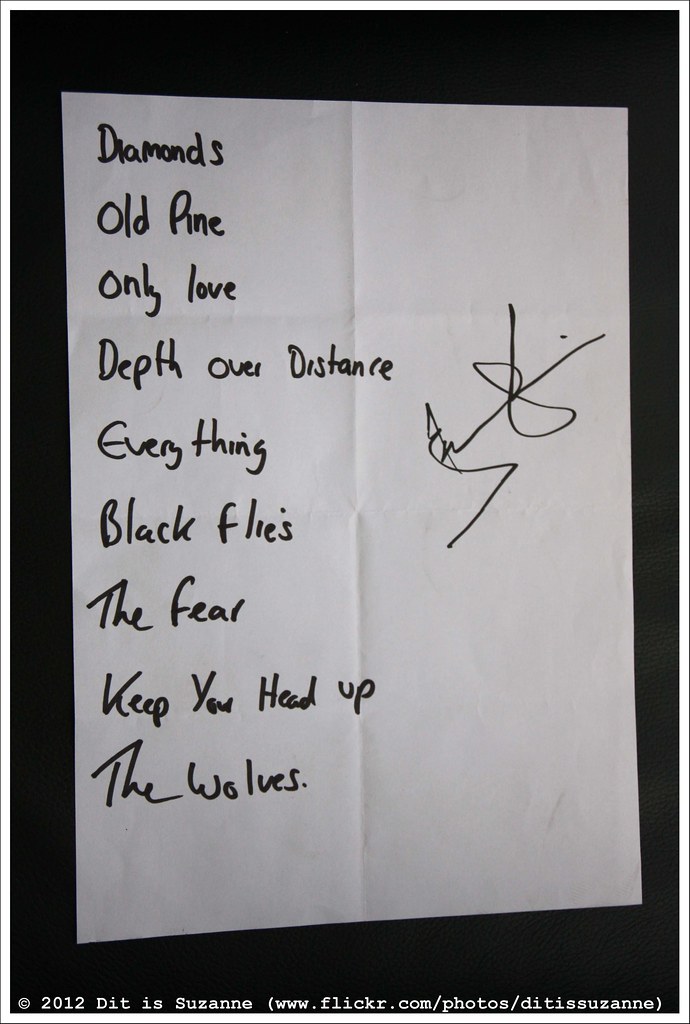 Diamonds
Old Pine
Only love
Depth over Distance
Everything
Black flies
The fear
Keep Your Head up
The Wolves.
© 2012 Dit is Suzanne (www.flickr.com/photos/ditissuzanne)